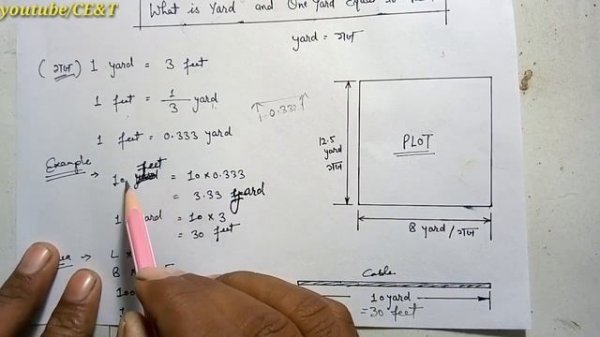 youtube/CE&T
What is Yard and One Yard Equal to
yard = गज
(गज) 1 yard = 3 feet
1 feet = 1/3 yard
0.333
1 feet = 0.333 yard
Example
→ 10 feet = 10 × 0.333
= 3.33 yard
yard = 10 × 3
= 30 feet
→ L
8
100
12.5
yard
गज
PLOT
8 yard / गज
Cable
10 yard
= 30 feet